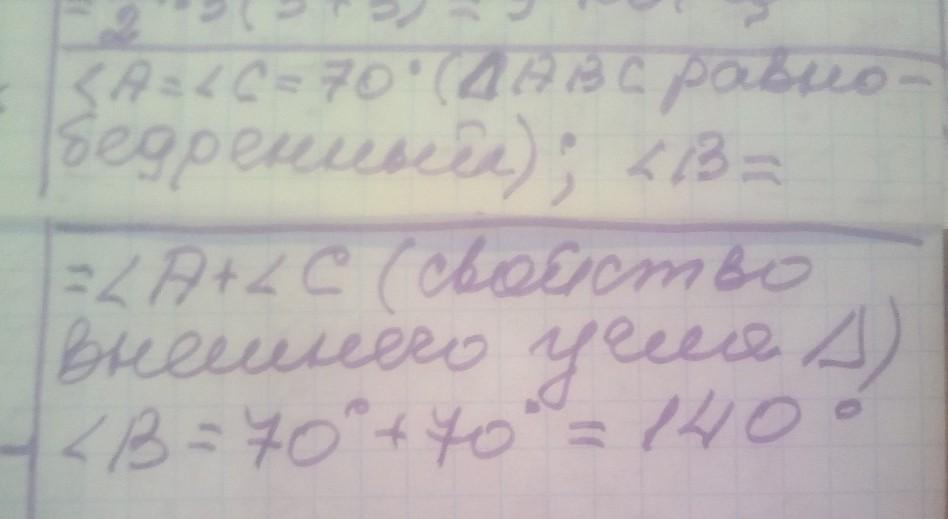 ∠A=∠C=70°(ΔABC равно-
бедренный); ∠B=
=∠A+∠C (свойство
внешнего угла Δ)
∠B=70°+70°=140°